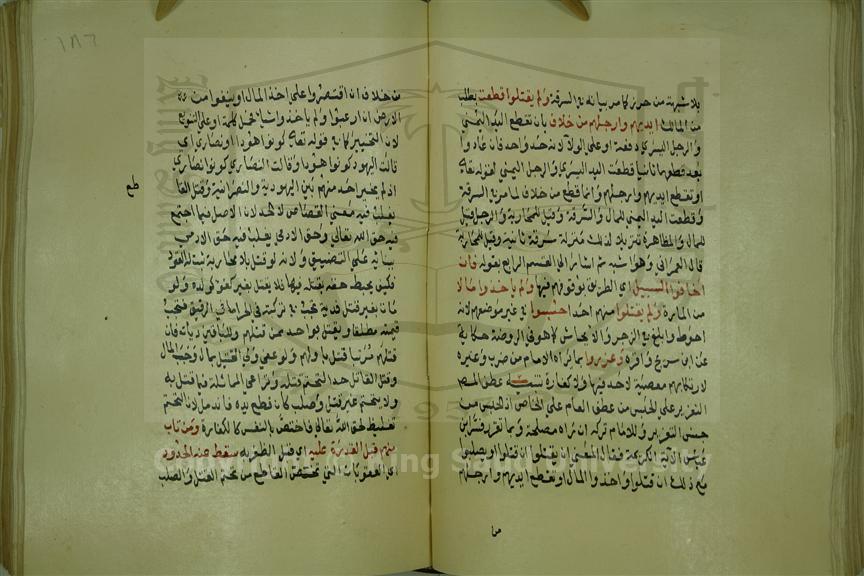 بلا شبهة من حرز كما مر بيانه في السرقة ولم يقتلوا قطعت بطلب
من المالك ايديهم وارجلهم من خلاف بان تقطع اليد اليمنى
والرجل اليسرى دفعة او على الولاء لانه حد واحد فان عادوا
بعد قطعهما ثانيا قطعت اليد اليسرى والرجل اليمنى لقوله تعالى
او تقطع ايديهم وارجلهم وانما قطع من خلاف لما مر في السرقة
وقطعت اليد اليمنى للمال والسرقة وقيل للمحاربة والرجل قيل
للمال والمظاهرة تنزيلا لذلك منزلة سرقة ثانية وقيل للمحاربة
قال العمراني وهو اشبه ثم اشار الى القسم الرابع بقوله فان
اخافوا السبيل اي الطريق بوقوفهم فيها ولم ياخذوا مالا
من المارة ولم يقتلوا منهم احد احبسوا في غير موضعهم لانه
احوط وابلغ في الزجر والايحاش كما هو في الروضة حكاية
عن ابن سريج واقره وعزروا بما يراه الامام من ضرب وغيره
لارتكابهم معصية لا حد فيها ولا كفارة تنبيه عطف المص
التعزير على الحبس من عطف العام على الخاص اذ الحبس من
جنس التعزير وللامام تركه ان رآه مصلحة وبما تقرر فسر ابن
عباس الآية الكريمة فقال المعنى ان يقتلوا ان قتلوا او يصلبوا
مع ذلك ان قتلوا واخذوا المال او تقطع ايديهم وارجلهم
من
١٨٦
من خلاف ان اقتصروا على اخذ المال او ينفوا من
الارض ان ارعبوا ولم ياخذوا شيا فحمل كلمة او على التنويع
لا التخيير كما في قوله تعالى كونوا هودا او نصارى اي
قالت اليهود كونوا هودا وقالت النصارى كونوا نصارى
اذ لم يخير احد منهم بين اليهودية والنصرانية وقتل القا
طع
يغلب فيه معنى القصاص لا الحد لان الاصل فيما اجتمع
فيه حق الله تعالى وحق الادمي يغلب فيه حق الادمي
بنائه على التضييق ولانه لو قتل بلا محاربة ثبت له القود
فكيف يحبط حقه بقتله فيها فلا يقتل بغير كفؤ كولده ولو
مات بغير قتل فدية تجب في تركته في الحر اما في الرقيق فتجب
قيمته مطلقا ويقتل بواحد ممن قتلهم وللباقين ديات فان
قتلهم مرتبا قتل باولهم ولو عفى ولي القتيل بمال وجب المال
وقتل القاتل حد التحتم قتله وتراعي المماثلة فيما قتل به
ولا يتحتم غير قتل وصلب كان قطع يده فاندمل لان التحتم
تغليظ لحق الله تعالى فاختص بالنفس كالكفارة ومن تاب
منهم قبل القدرة عليه اي قبل الظفر به سقط عنه الحدود
اي العقوبات التي تختص القاطع من تحتم القتل والصلب